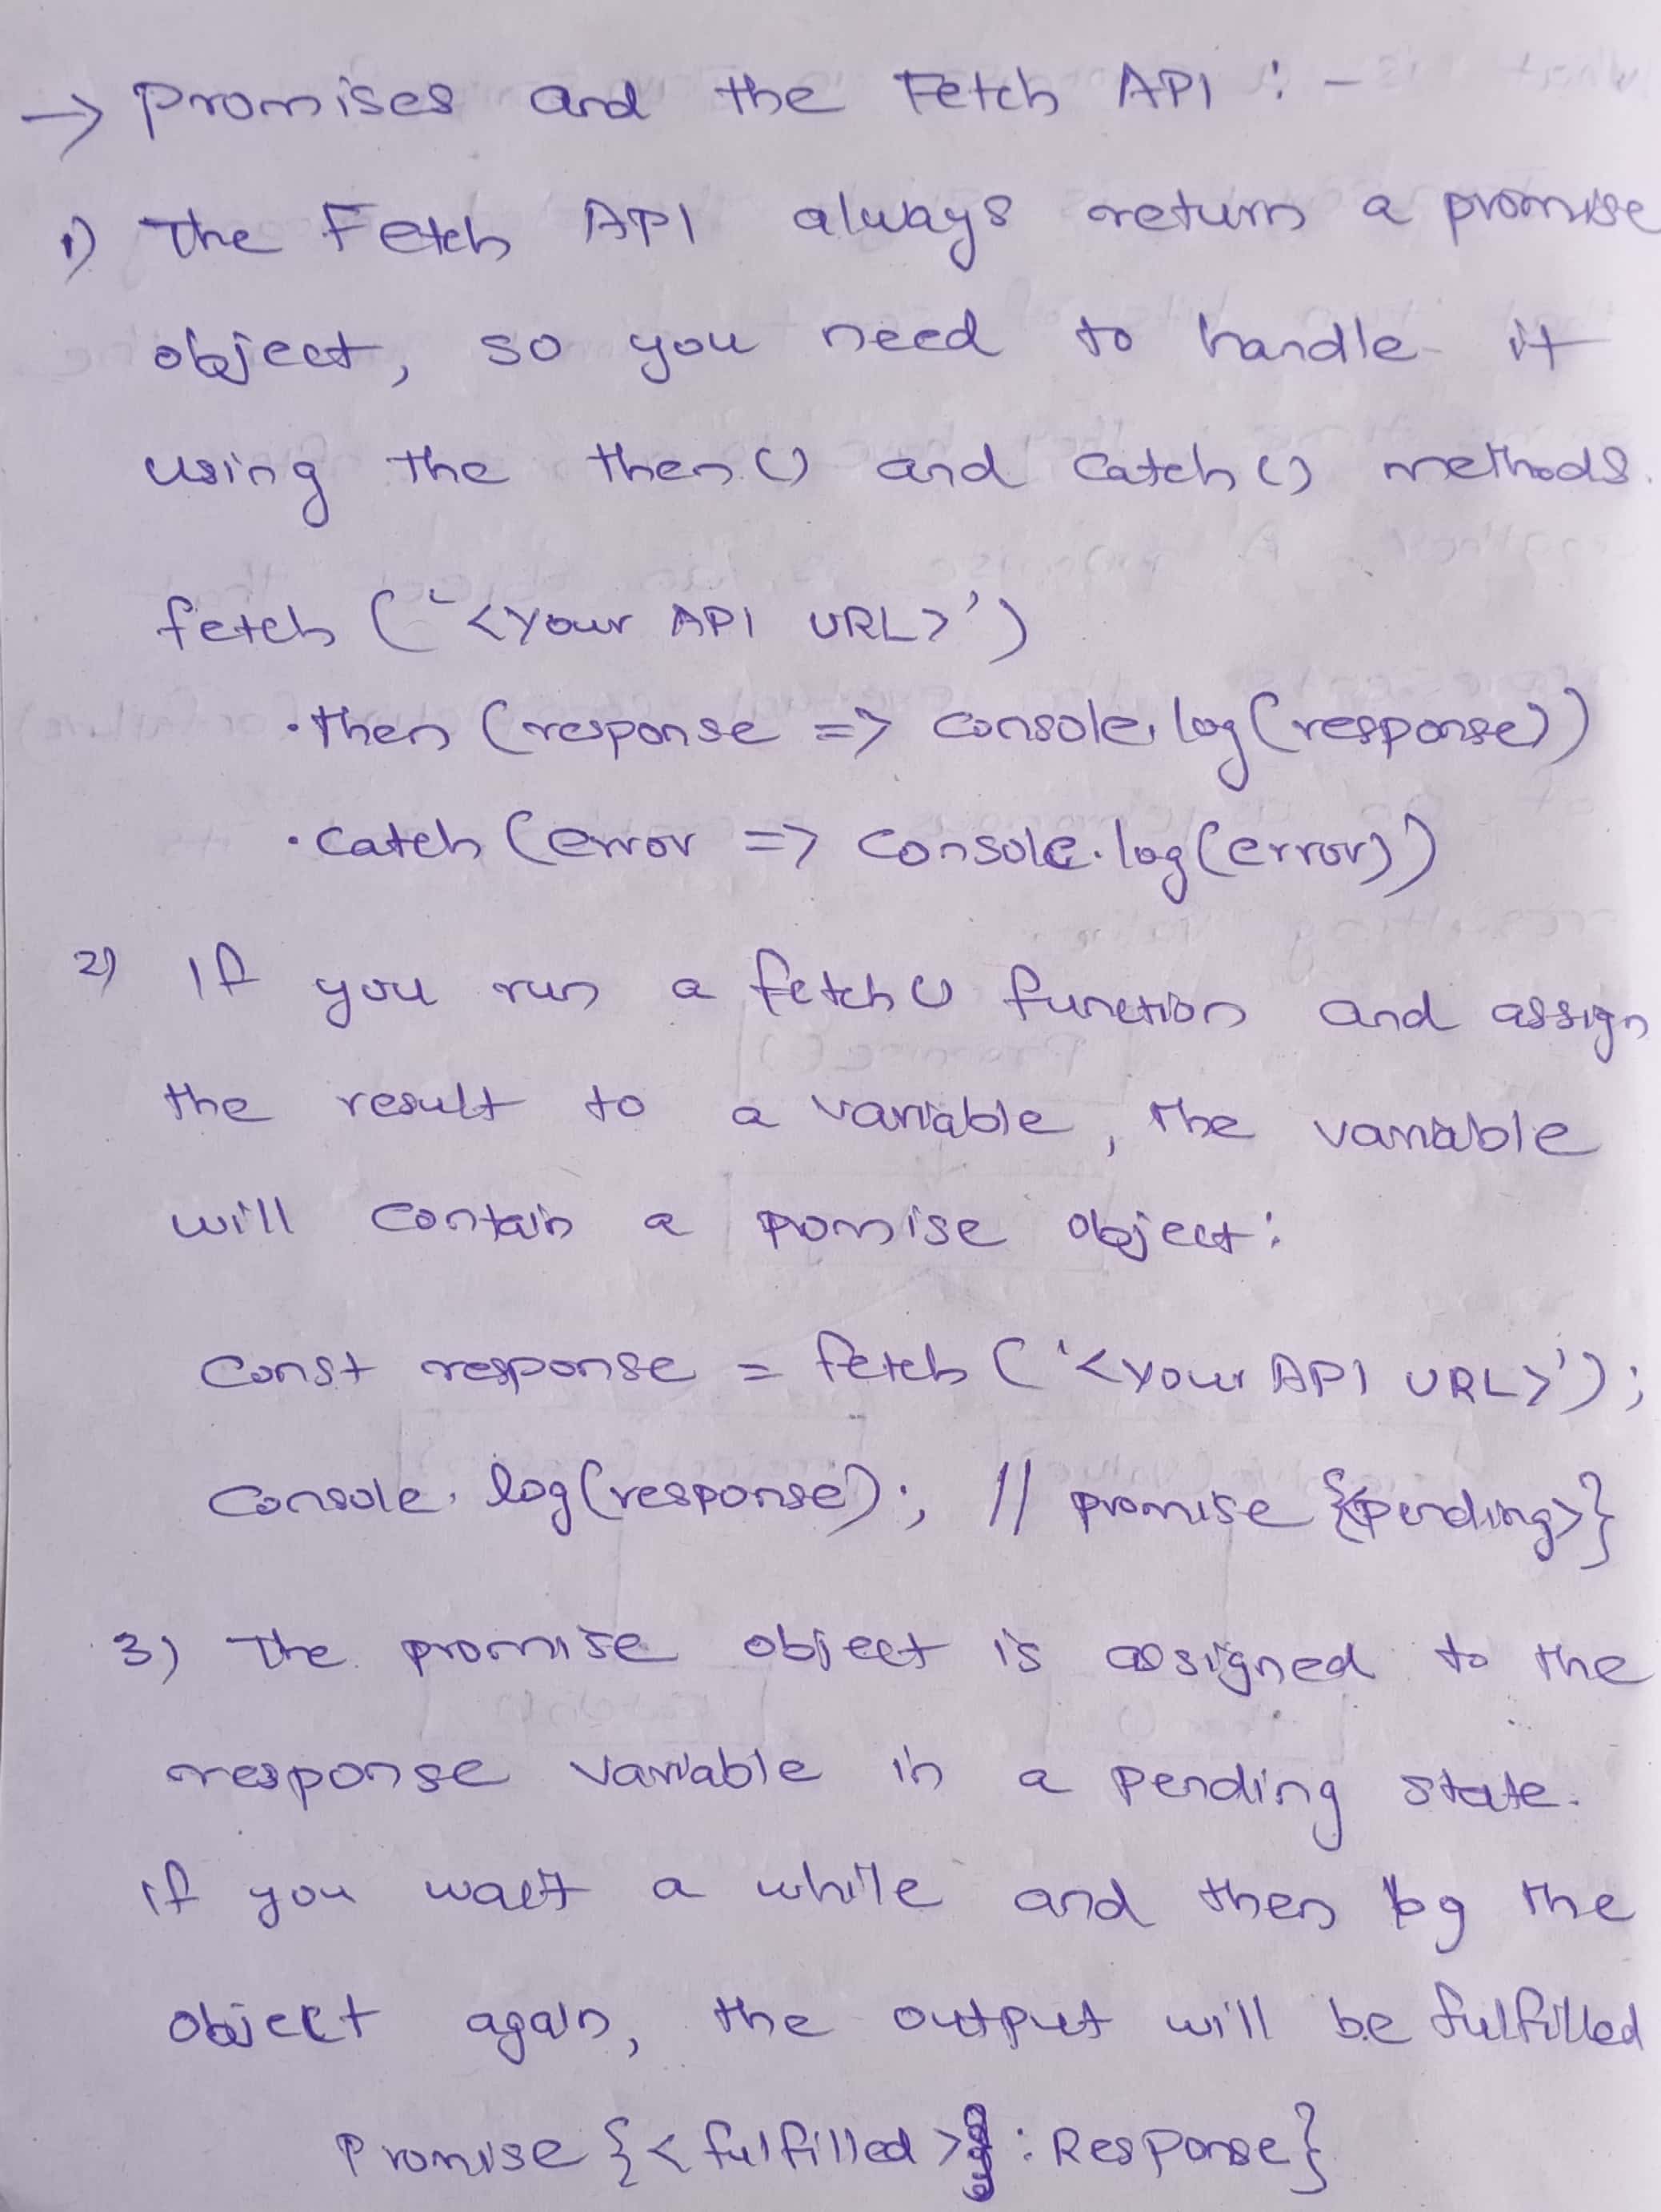 → Promises and the Fetch API :-
1) The Fetch API always return a promise
object, so you need to handle it
using the then() and catch() methods.
fetch ('<Your API URL>')
.then (response => console.log(response))
.catch (error => console.log(error))
2) If you run a fetch() function and assign
the result to a variable, the variable
will contain a promise object:
const response = fetch ('<Your API URL>');
console.log(response); // promise {<pending>}
3) The promise object is assigned to the
response variable in a pending state.
if you wait a while and then log the
object again, the output will be fulfilled
Promise {<fulfilled> : Response}